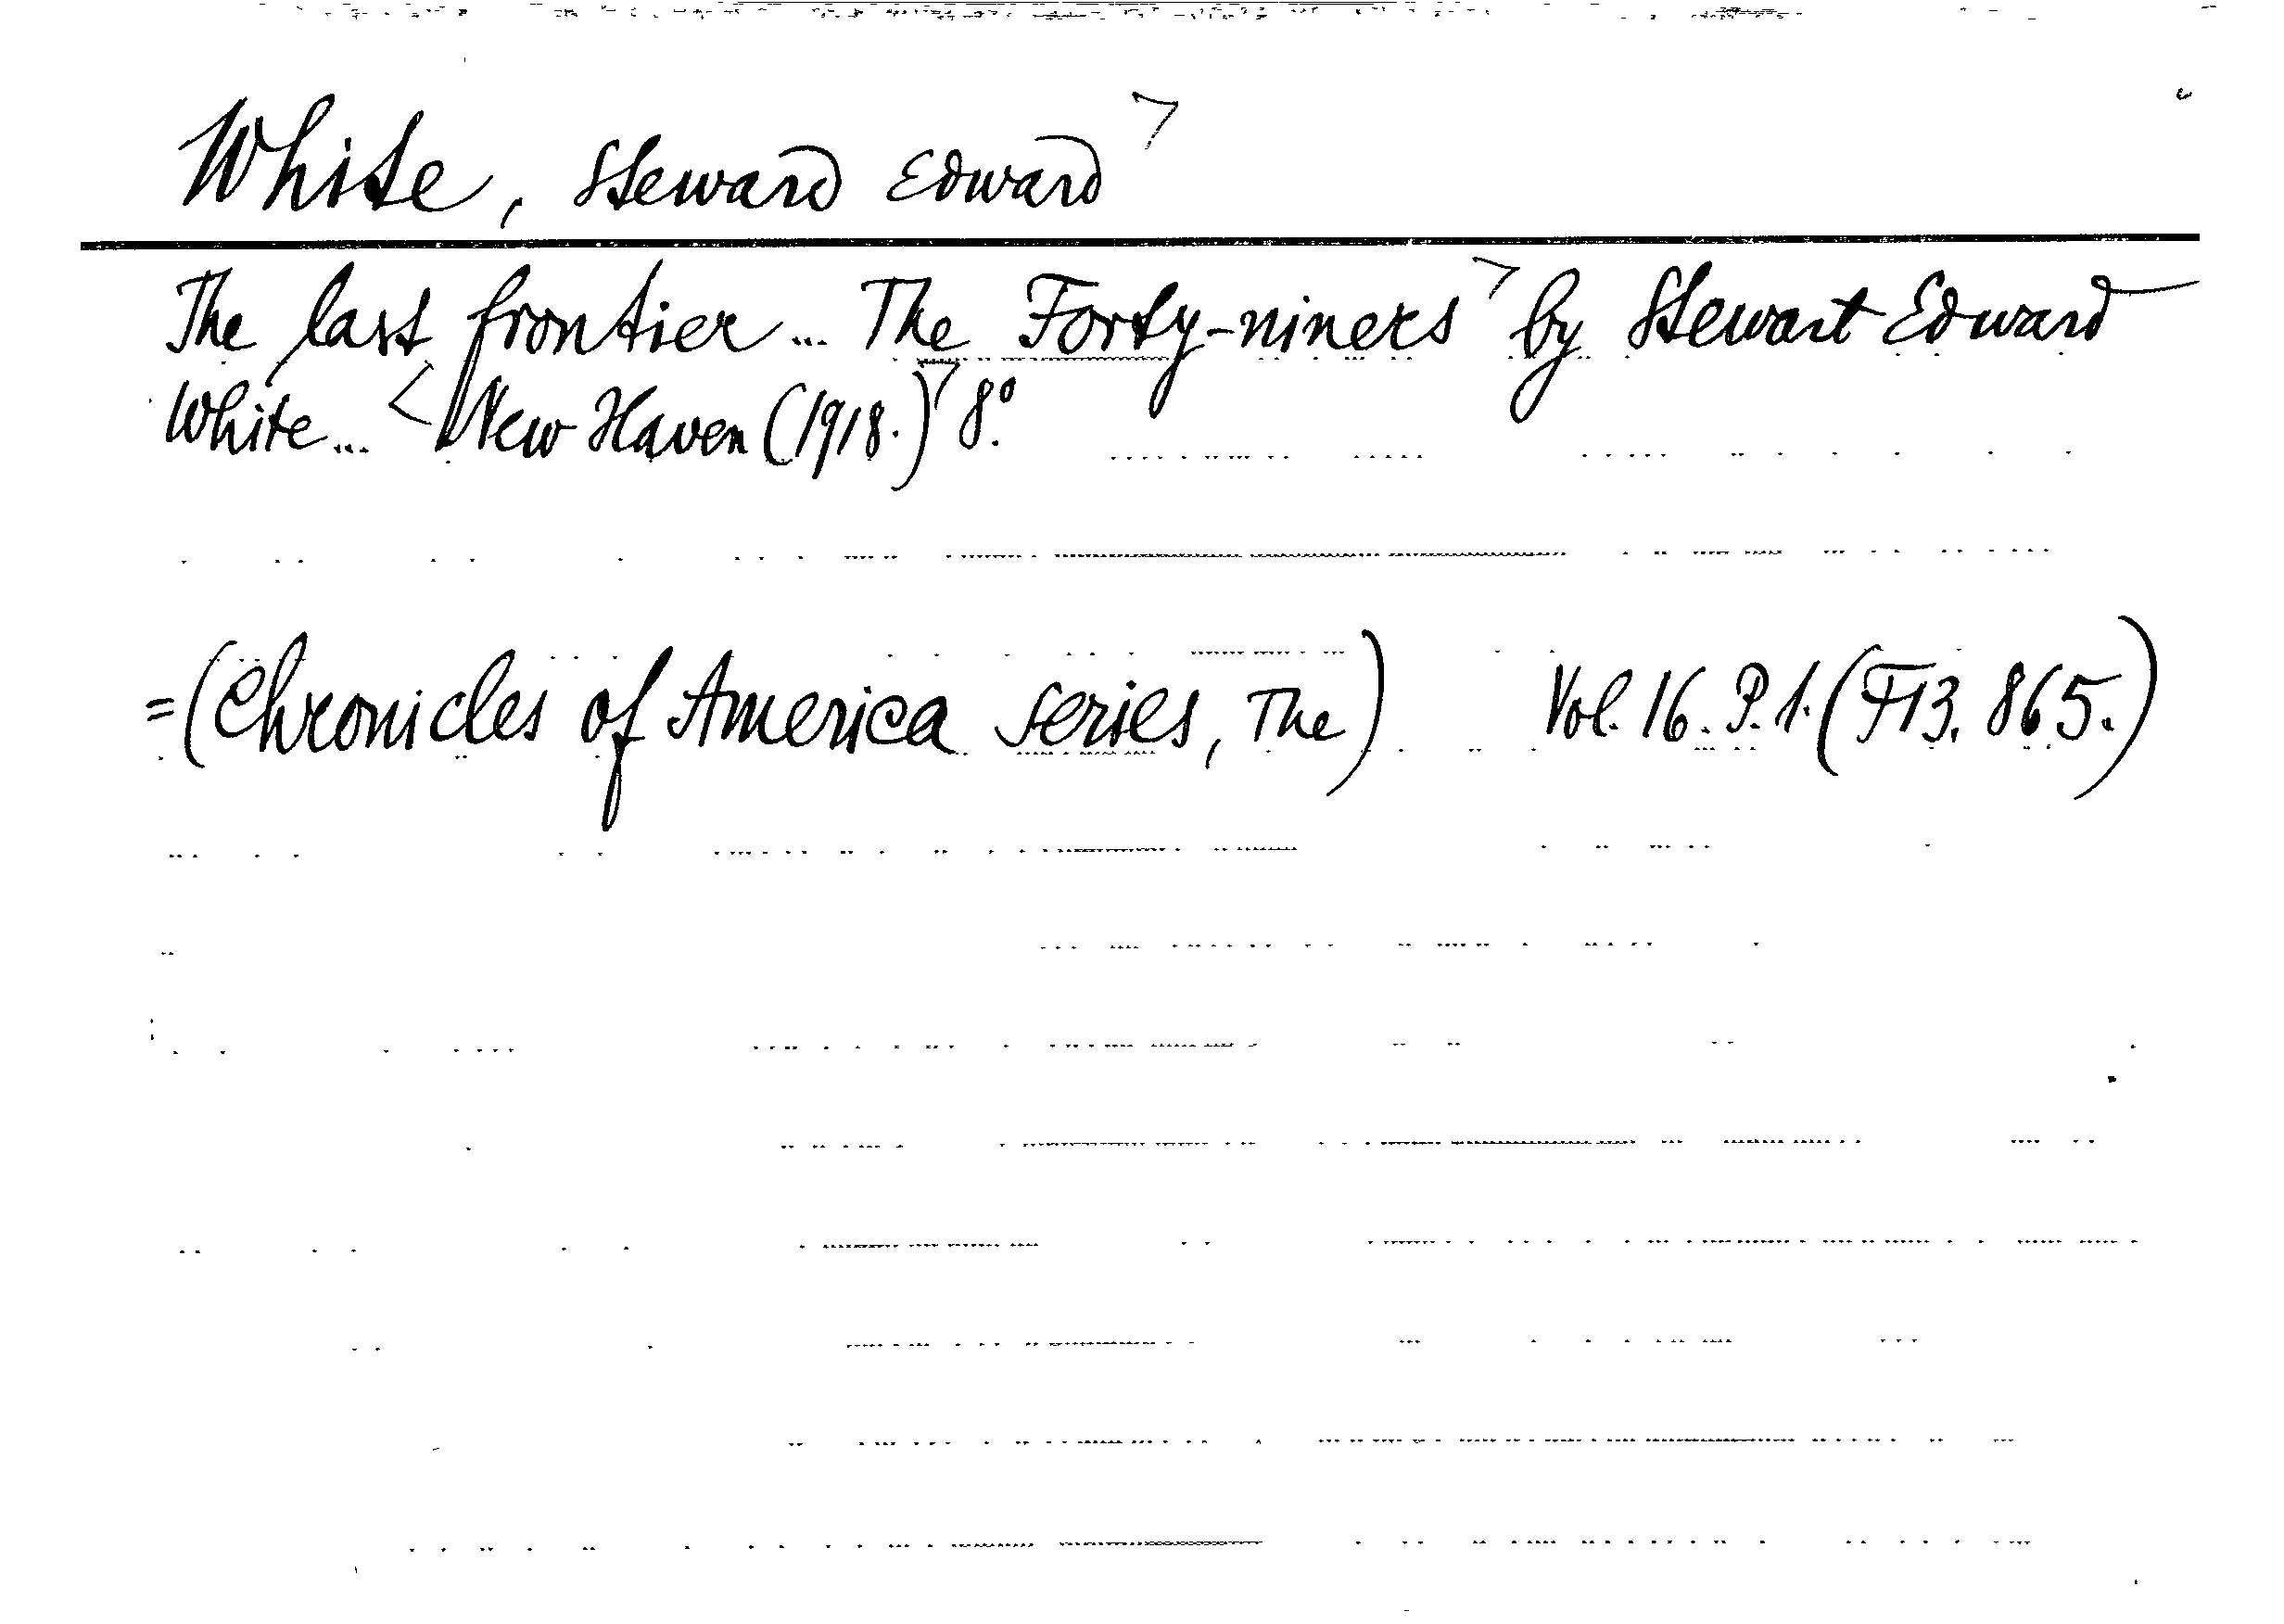 White, Steward Edward ⌝
The last frontier... The Forty-niners ⌝ by Stewart Edward
White... < New Haven (1918.) ⌝ 8.º
=(Chronicles of America series, The) Vol. 16. P. 1. (F13. 865.)